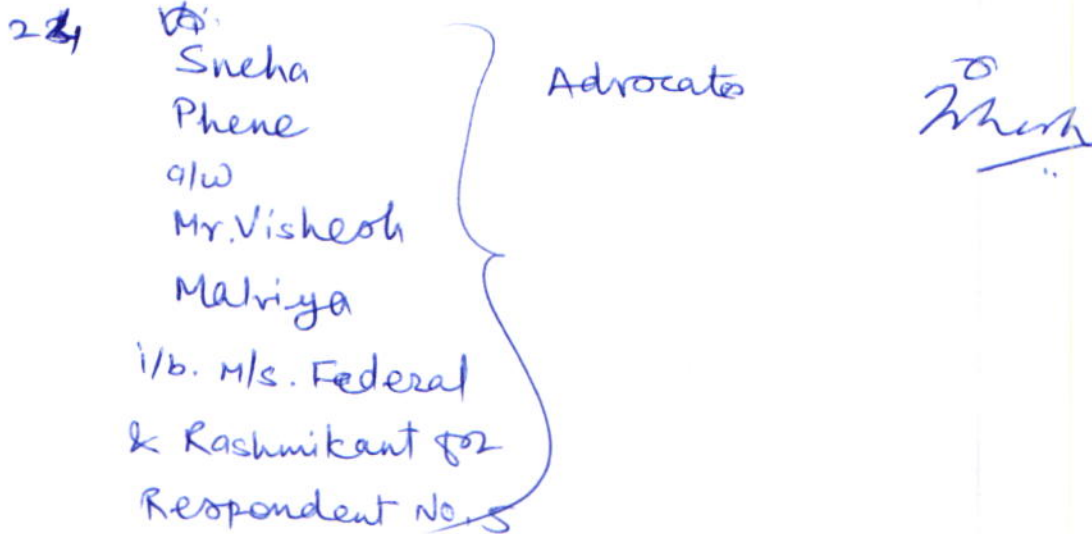 Sneha
Phene
a/w
Mr. Vishesh
Malviya
i/b. M/s. Federal
& Rashmikant for
Respondent No. 5
Advocates